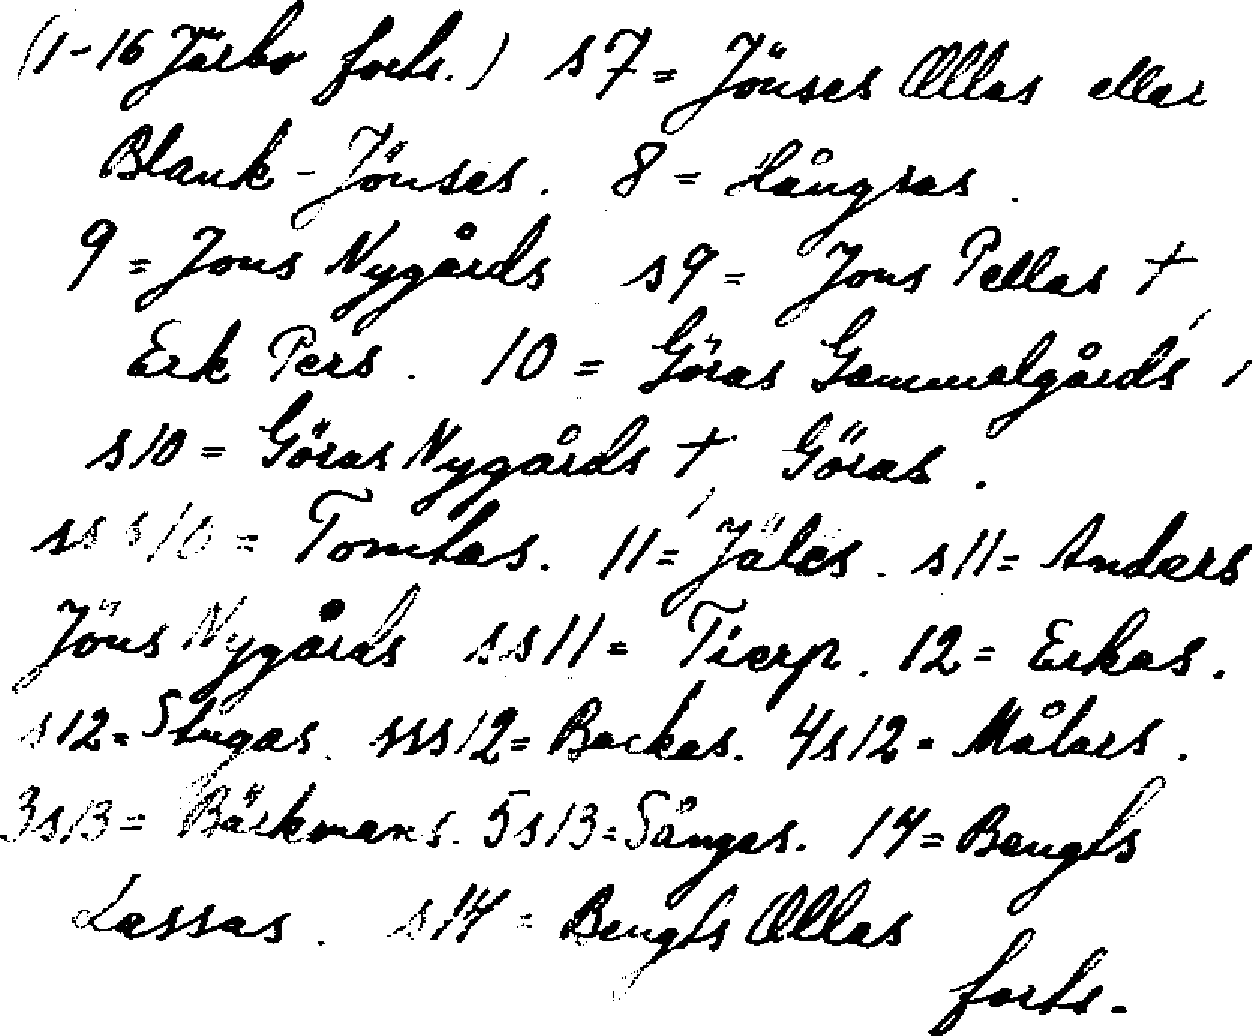 (1-16 Järbo forts.) s7 = Jönses Ollas eller
Blank-Jönses. 8 = Hångsas.
9 = Jons Nygårds s9 = Jons Pellas +
Erk Pers. 10 = Göras Gammelgårds,
s10 = Göras Nygårds + Göras.
sss10 = Tomtas. 11 = Jäles. s11 = Anders
Jöns Nygårds ss11 = Tierp. 12 = Erkas.
s12 = Stugas. sss12 = Backas. 4s12 = Målars.
3s13 = Bäckmans. 5s13 = Sångas. 14 = Bengts
Lassas. s14 = Bengts Ollas
forts.